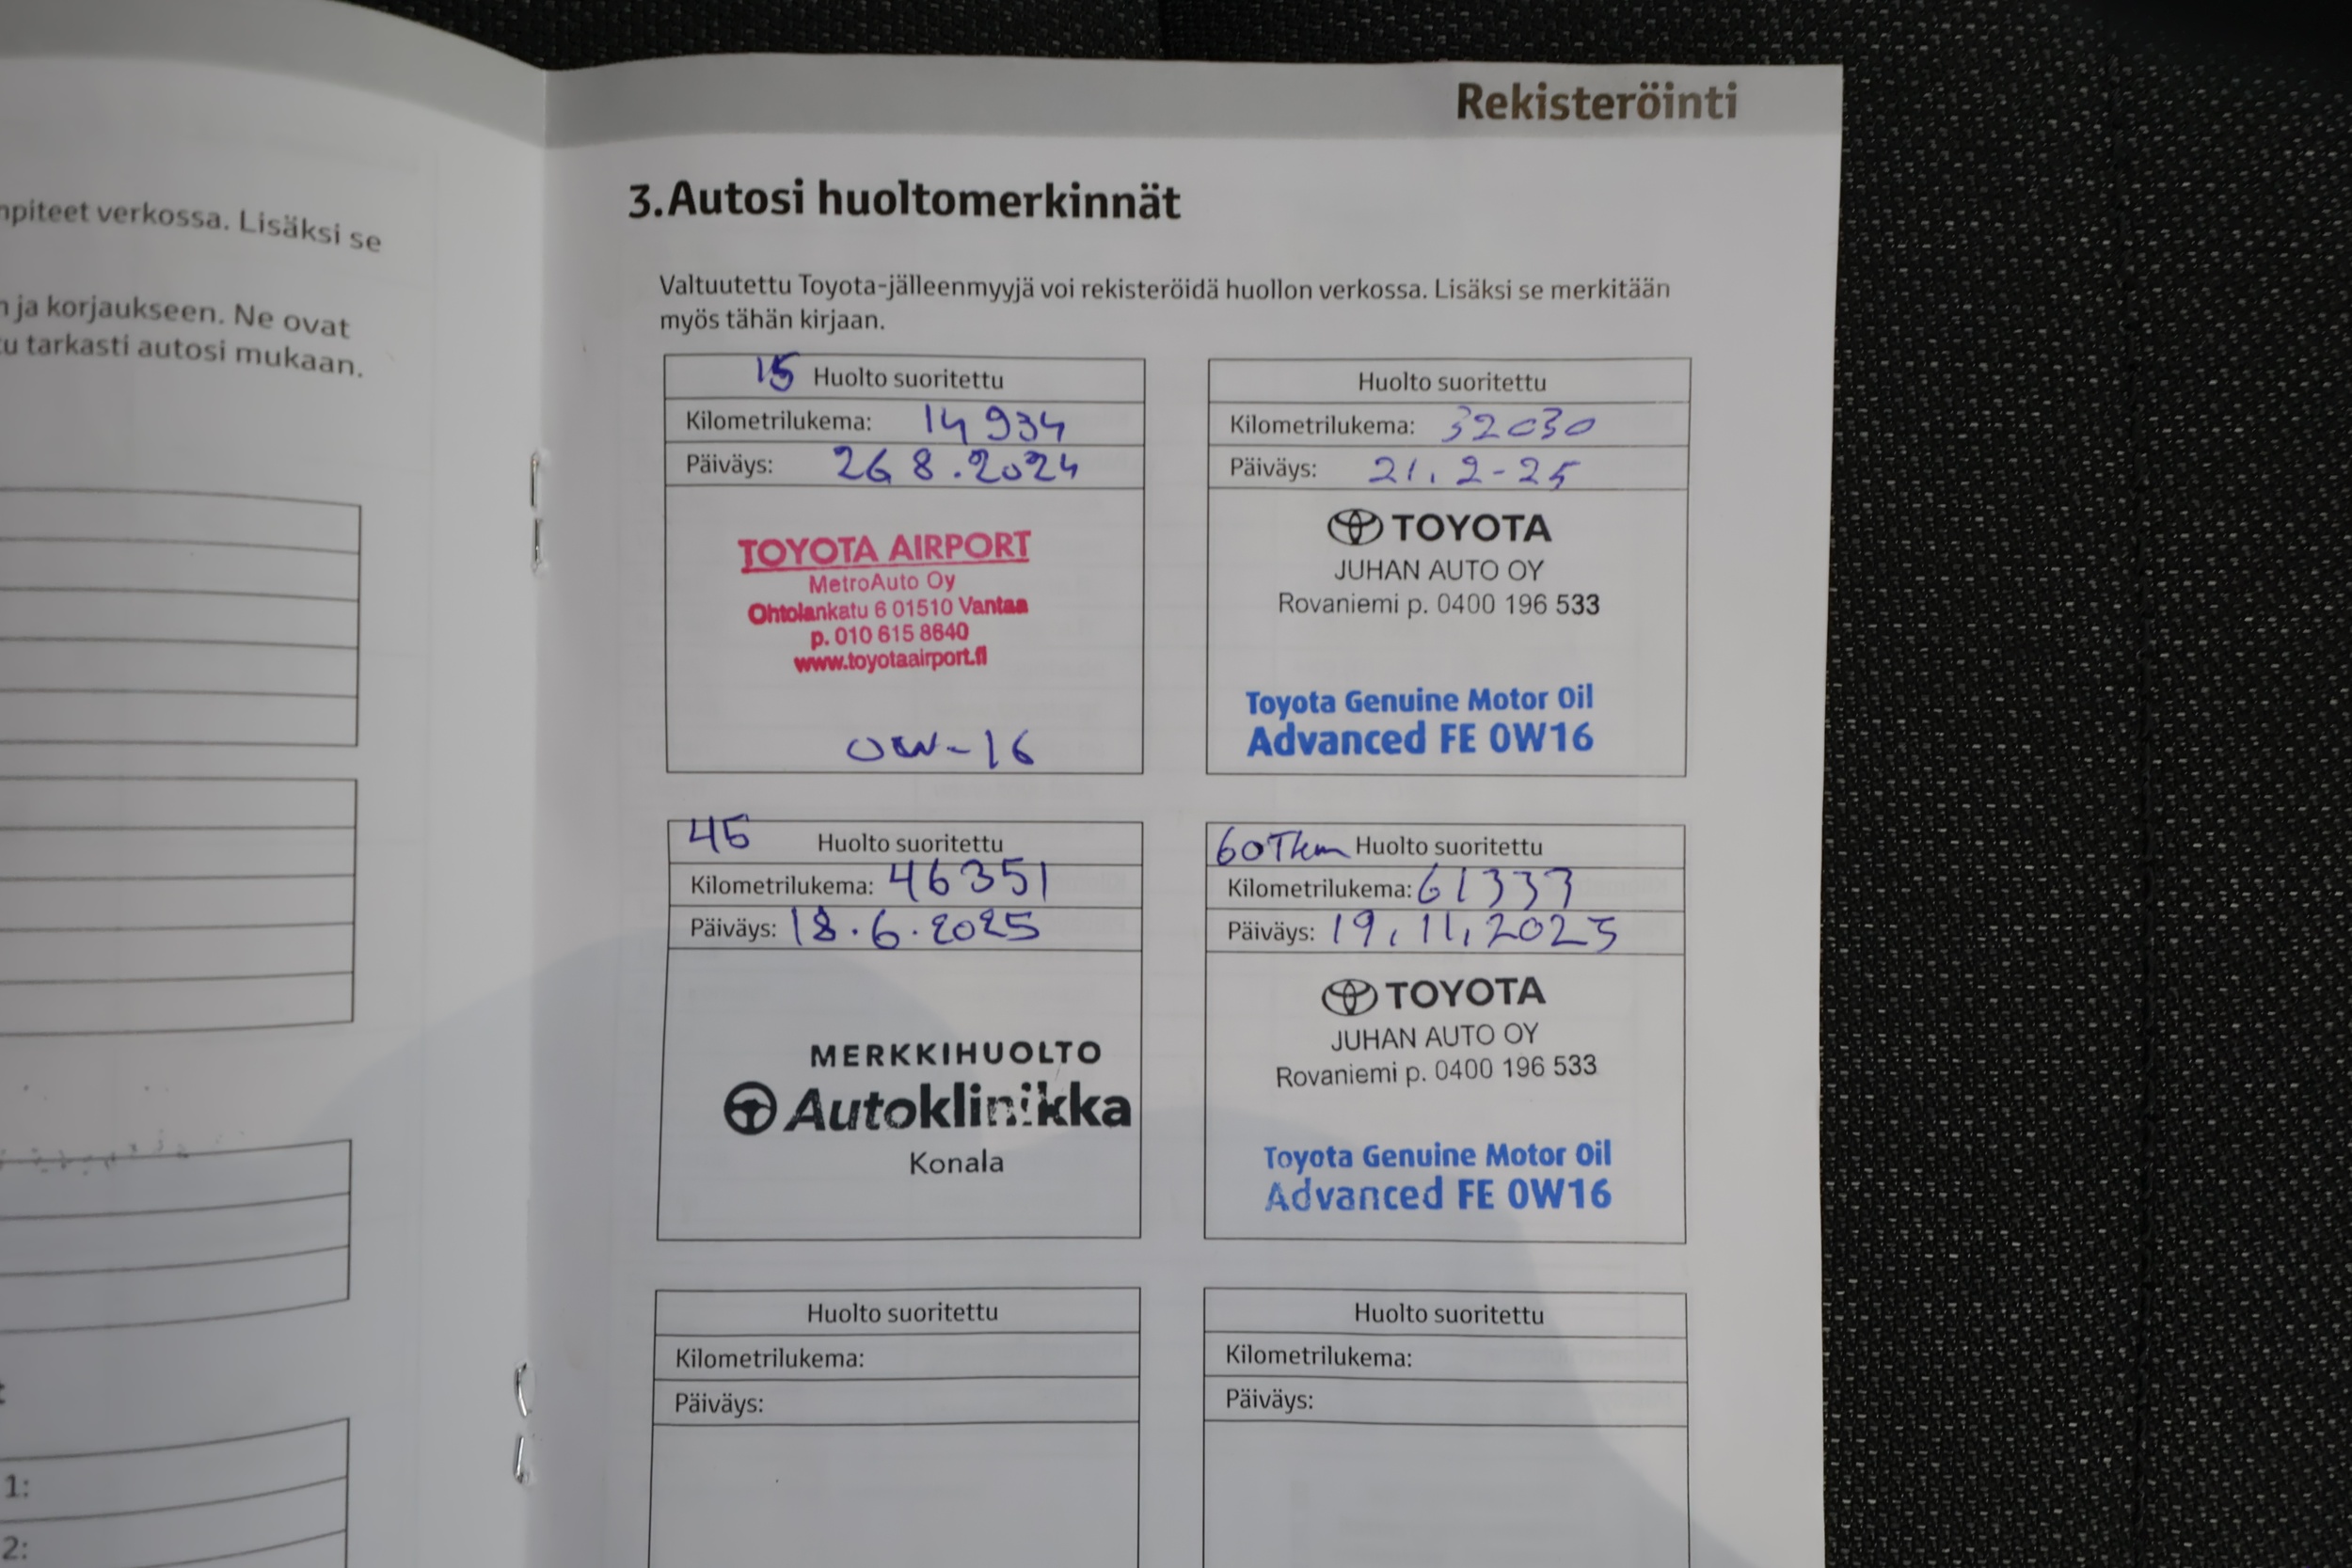 npiteet verkossa. Lisäksi se
n ja korjaukseen. Ne ovat
tu tarkasti autosi mukaan.
1:
2:
Rekisteröinti
3. Autosi huoltomerkinnät
Valtuutettu Toyota-jälleenmyyjä voi rekisteröidä huollon verkossa. Lisäksi se merkitään
myös tähän kirjaan.
15 Huolto suoritettu
Kilometrilukema: 14 934
Päiväys: 26 8.2024
TOYOTA AIRPORT
MetroAuto Oy
Ohtolankatu 6 01510 Vantaa
p. 010 615 8640
www.toyotaairport.fi
0W-16
Huolto suoritettu
Kilometrilukema: 32030
Päiväys: 21.2-25
TOYOTA
JUHAN AUTO OY
Rovaniemi p. 0400 196 533
Toyota Genuine Motor Oil
Advanced FE 0W16
45 Huolto suoritettu
Kilometrilukema: 46351
Päiväys: 18.6.2025
MERKKIHUOLTO
Autoklinikka
Konala
60Tkm Huolto suoritettu
Kilometrilukema: 61337
Päiväys: 19.11.2025
TOYOTA
JUHAN AUTO OY
Rovaniemi p. 0400 196 533
Toyota Genuine Motor Oil
Advanced FE 0W16
Huolto suoritettu
Kilometrilukema:
Päiväys:
Huolto suoritettu
Kilometrilukema:
Päiväys: